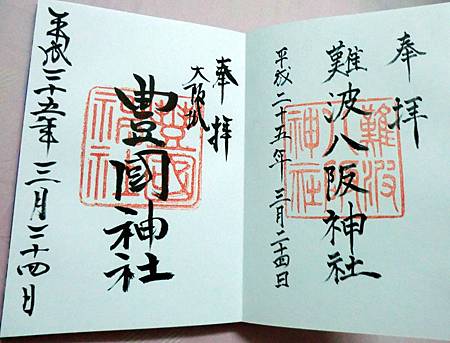 奉拝
難波八阪神社
平成二十五年 三月二十四日
難波
八阪
神社
奉拝
大阪城
豊國神社
平成二十五年 三月二十四日